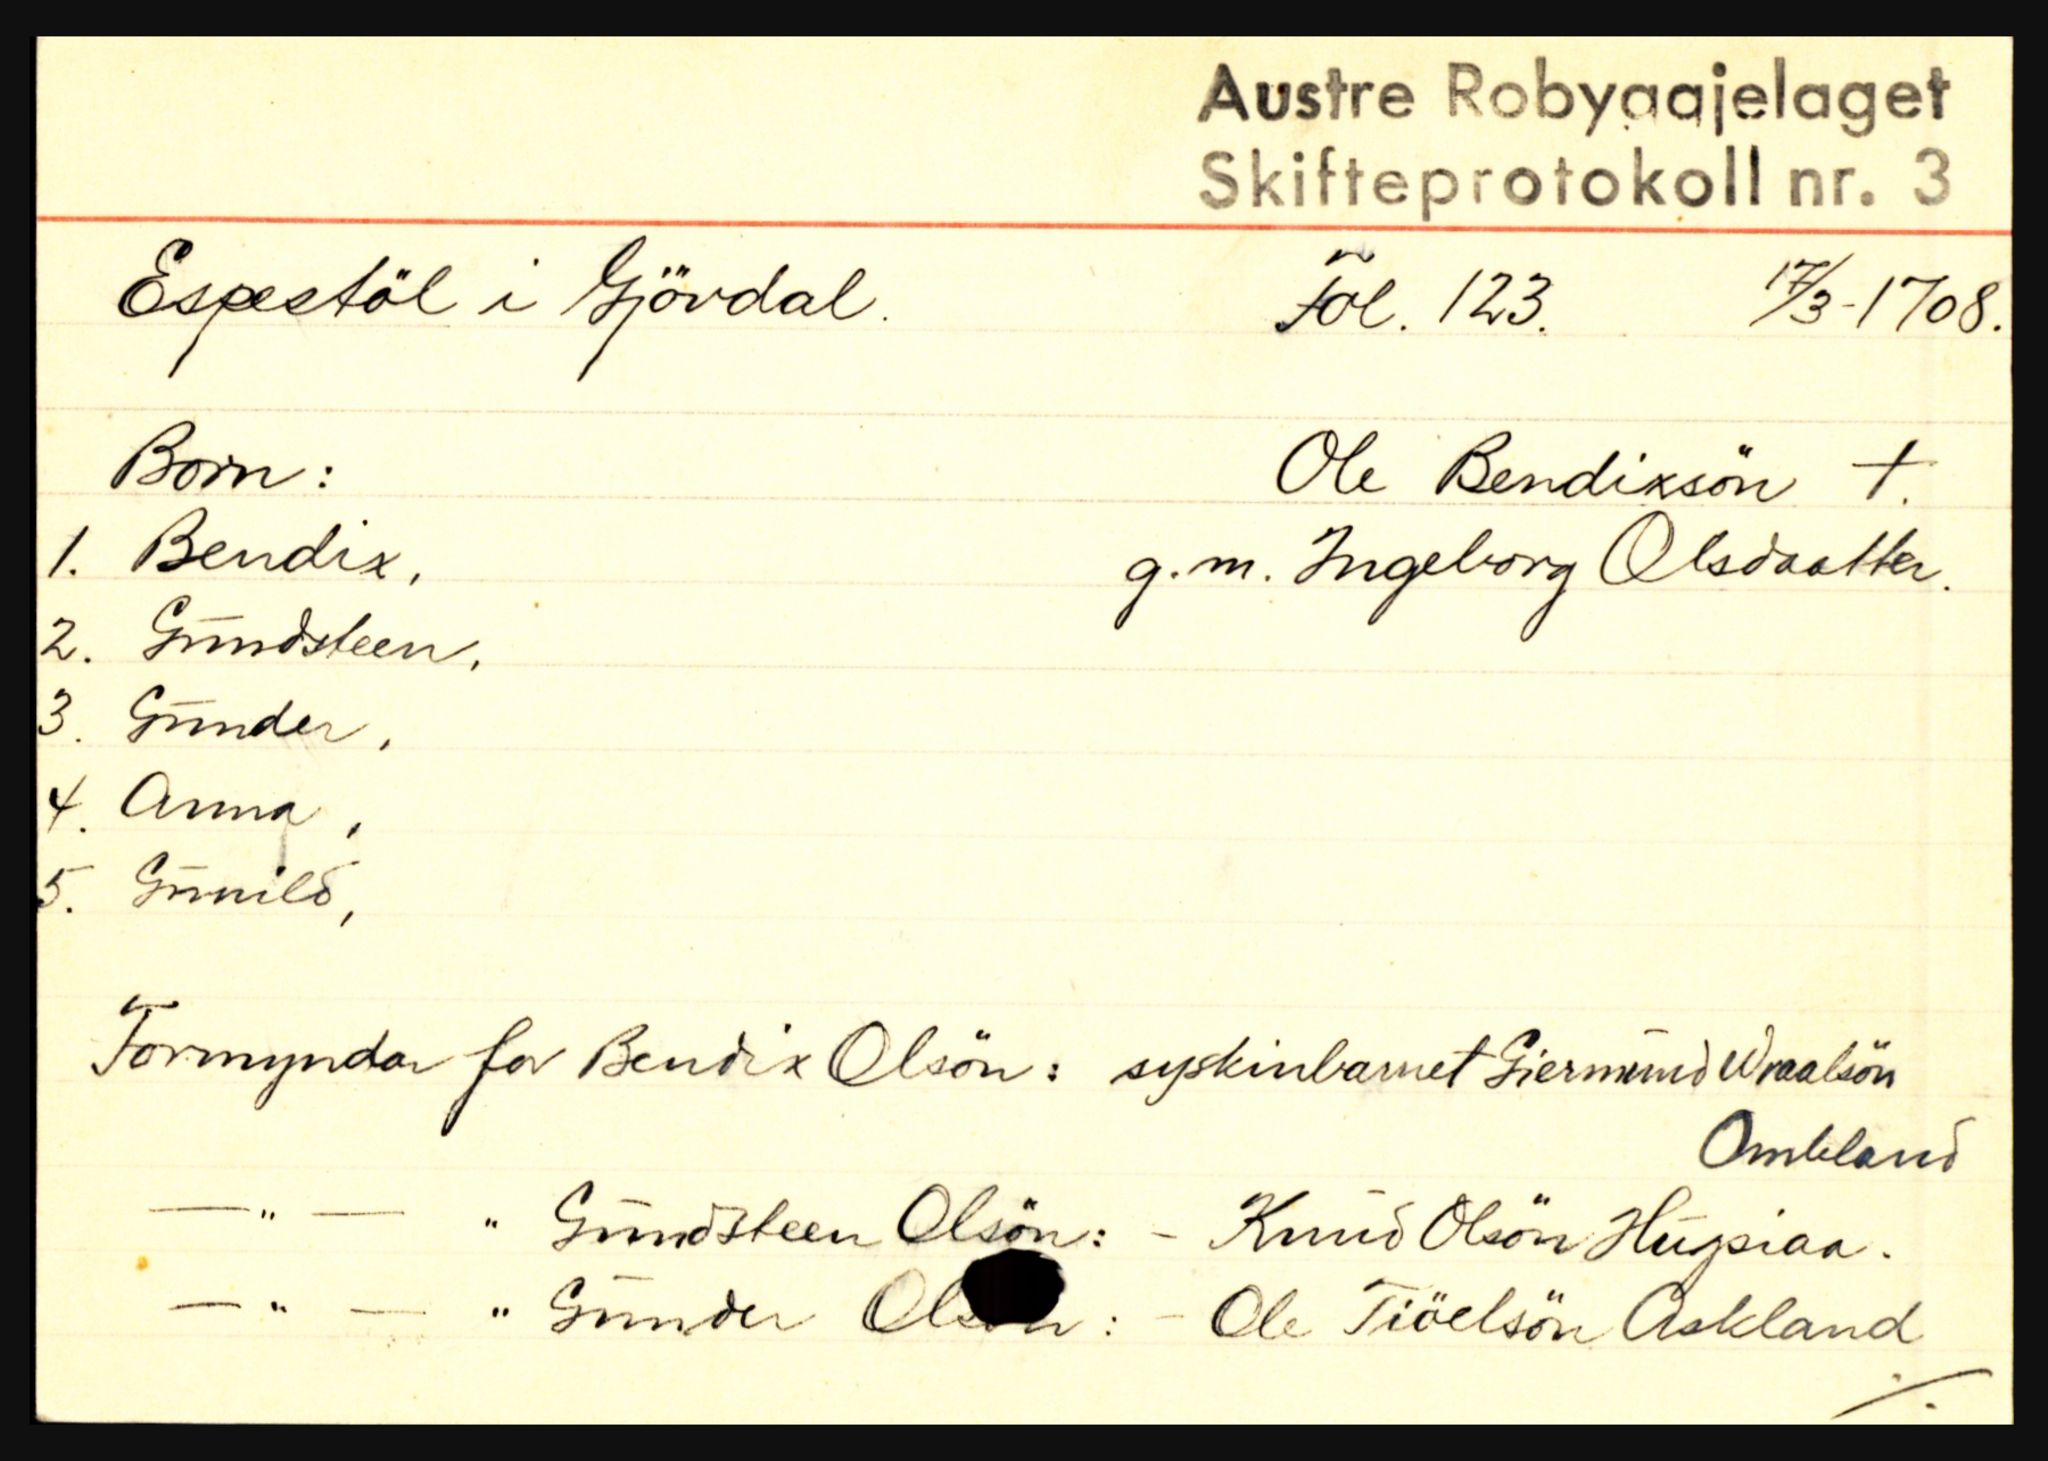 Austre Robygaajelaget
Skifteprotokoll nr. 3
Espestöl i Gjövdal. Fol. 123. 17/3-1708.
Born: Ole Bendixsön †.
1. Bendix, g.m. Ingeborg Olsdaatter.
2. Gundsteen,
3. Gunder,
4. Anna,
5. Gunild,
Formyndar for Bendix Olsön: syskinbarnet Giermund Wraalsön
Ombland
—"— " Gundsteen Olsön: - Knud Olsön Hugsiaa.
—"— " Gunder Olsön: - Ole Tiöelsön Askland
./.